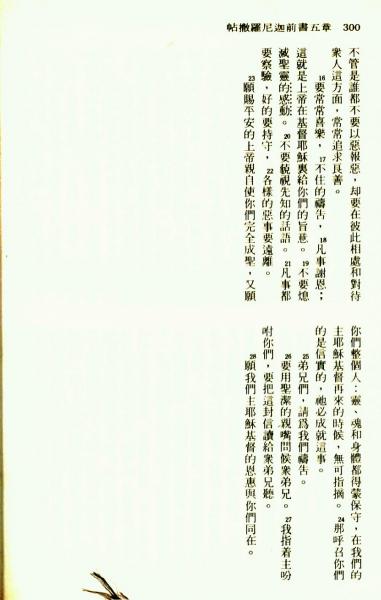 帖撒羅尼迦前書五章 300
不管是誰都不要以惡報惡,却要在彼此相處和對待
衆人這方面,常常追求良善。
16要常常喜樂,17不住的禱告,18凡事謝恩;
這就是上帝在基督耶穌裏給你們的旨意。19不要熄
滅聖靈的感動。20不要藐視先知的話語。21凡事都
要察驗,好的要持守,22各樣的惡事要遠離。
23願賜平安的上帝親自使你們完全成聖,又願
你們整個人:靈、魂和身體都得蒙保守,在我們的
主耶穌基督再來的時候,無可指摘。24那呼召你們
的是信實的,祂必成就這事。
25弟兄們,請爲我們禱告。
26要用聖潔的親嘴問候衆弟兄。27我指着主吩
咐你們,要把這封信讀給衆弟兄聽。
28願我們主耶穌基督的恩惠與你們同在。